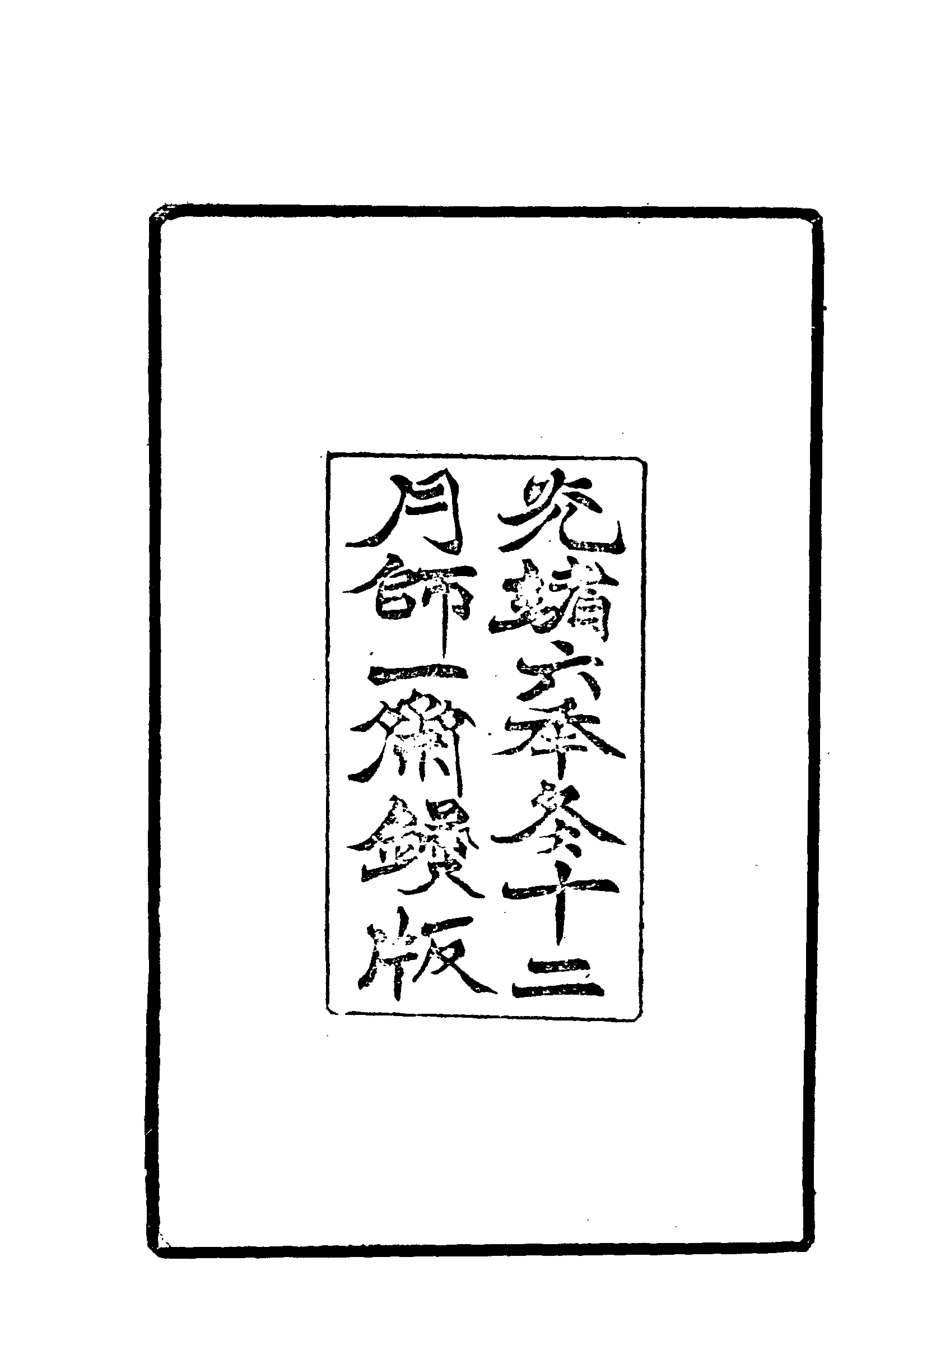 光緒六年冬十二
月師一齋鋟版